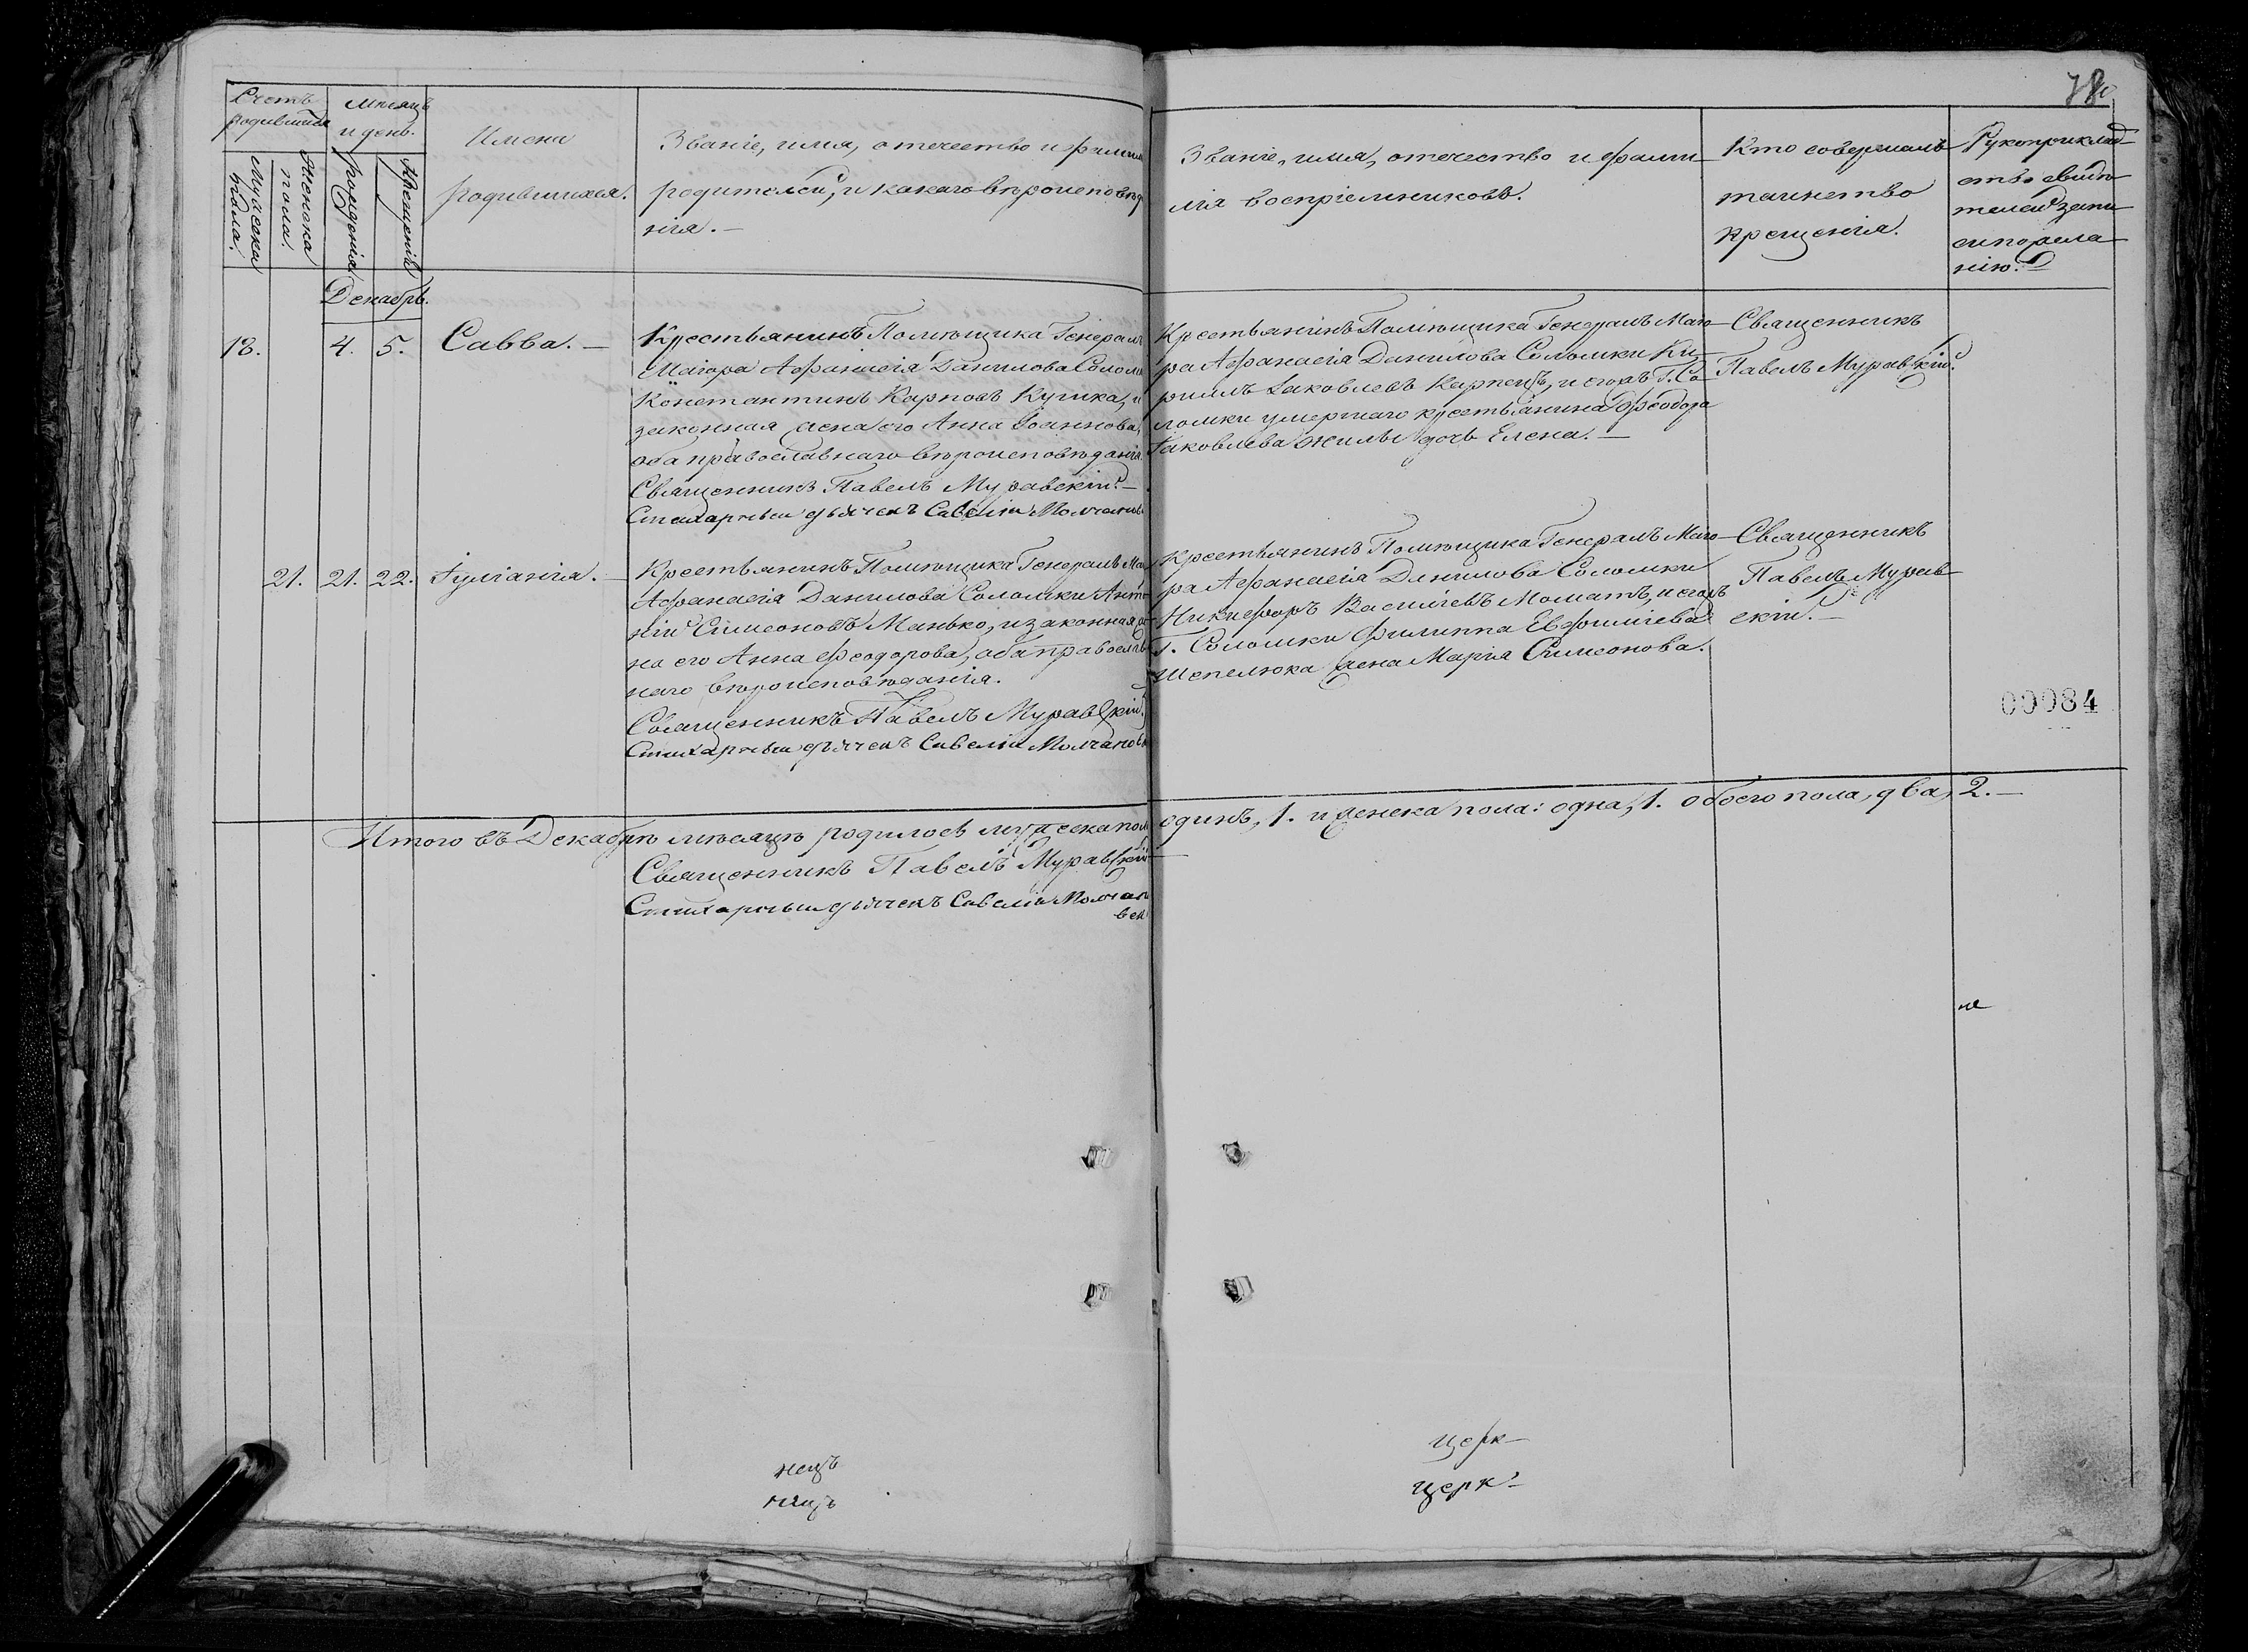 78
Счетъ
родившихся
Мѣсяцъ
и день.
Мужеска
пола.
Женска
пола.
рожденія
крещенія
Имена
родившихся.
Званіе, имя, отечество и фамилія
родителей, и какого вѣроисповѣда
нія. —
Званіе, имя, отечество и фами-
лія воспріемниковъ.
Кто совершалъ
таинство
крещенія.
Рукоприклад-
ство свидѣ-
телей запи-
си по жела-
нію.
Декабрь.
18.
4.
5.
Савва. —
Крестьянинъ Помѣщика Генералъ
Маіора Афанасія Данилова Соломки
Константинъ Карповъ Кушка, и
законная жена его Анна Іоаннова,
оба православнаго вѣроисповѣданія.
Священникъ Павелъ Муравскій. —
Стихарный дьячекъ Савелій Молчанов
Крестьянинъ Помѣщика Генералъ Маіо-
ра Афанасія Данилова Соломки Ки-
риллъ Іаковлевъ Карпецъ, и егожъ Г. Со-
ломки умершаго крестьянина Феодора
Іаковлева Жилы дочь Елена. —
Священникъ
Павелъ Муравскій.
21.
21.
22.
Іуліанія. —
Крестьянинъ Помѣщика Генералъ Ма
Афанасія Данилова Соломки Анто-
ній Симеоновъ Манько, и законная же-
на его Анна Феодорова, оба православ
наго вѣроисповѣданія.
Священникъ Павелъ Муравскій.
Стихарный дьячекъ Савелій Молчановъ
Крестьянинъ Помѣщика Генералъ Маіо-
ра Афанасія Данилова Соломки
Никифоръ Василіевъ Моматъ, и егожъ
Г. Соломки Филиппа Евфиміева
Шепелюка жена Марія Симеонова.
Священникъ
Павелъ Мурав-
скій. —
00084
Итого въ Декабрѣ мѣсяцѣ родилось мужеска пола одинъ, 1. и женска пола: одна, 1. обоего пола, два, 2. —
Священникъ Павелъ Муравскій —
Стихарный дьячекъ Савелій Молчан
вск
церк-
церк-